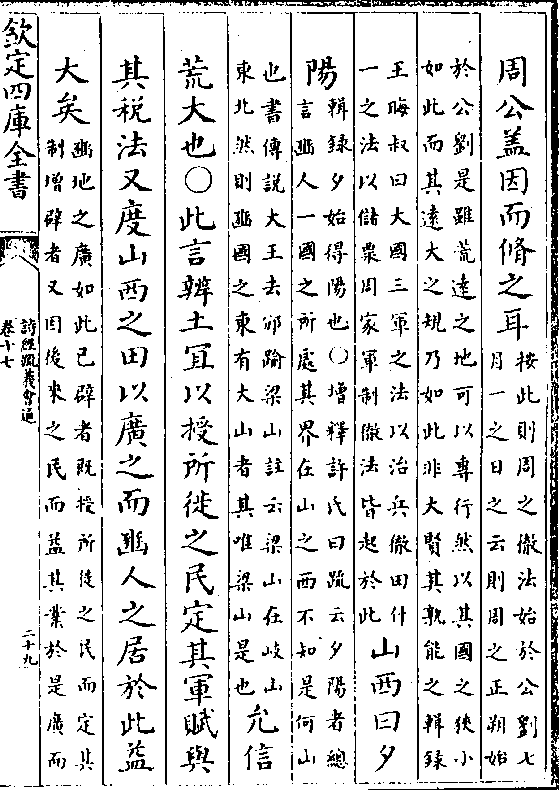 周公盖因而脩之耳
按此則周之徹法始於公劉七
月一之日之云則周之正朔始
於公劉是雖荒遠之地可以專行然以其國之狹小
如此而其遠大之規乃如此非大賢其孰能之輯録
王晦叔曰大國三軍之法以治兵徹田什
一之法以儲粟周家軍制徹法皆起於此
山西曰夕
陽
輯録夕始得陽也○增釋許氏曰疏云夕陽者總
言豳人一國之所處其界在山之西不知是何山
也書傳説大王去邠踰梁山註云梁山在岐山
東北然則豳國之東有大山者其唯梁山是也
允信
荒大也○此言辨土宜以授所徙之民定其軍賦與
其税法又度山西之田以廣之而豳人之居於此益
大矣
豳地之廣如此已辟者既授所徙之民而定其
制增辟者又因後來之民而益其業於是廣而
欽定四庫全書
詩經疏義會通
卷十七
二十九